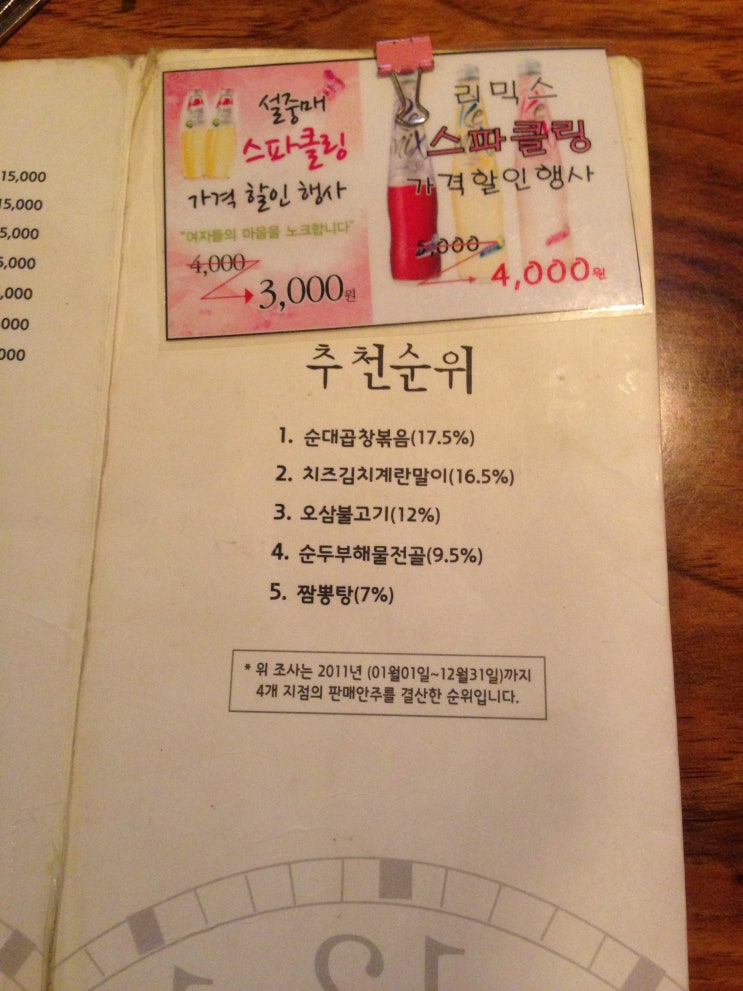 15,000
15,000
5,000
5,000
,000
000
000
설중매
스파클링
가격 할인 행사
"여자들의 마음을 노크합니다"
4,000
3,000원
리믹스
스파클링
가격할인행사
5,000
4,000원
추천순위
1. 순대곱창볶음(17.5%)
2. 치즈김치계란말이(16.5%)
3. 오삼불고기(12%)
4. 순두부해물전골(9.5%)
5. 짬뽕탕(7%)
* 위 조사는 2011년 (01월01일~12월31일)까지
4개 지점의 판매안주를 결산한 순위입니다.
12
1